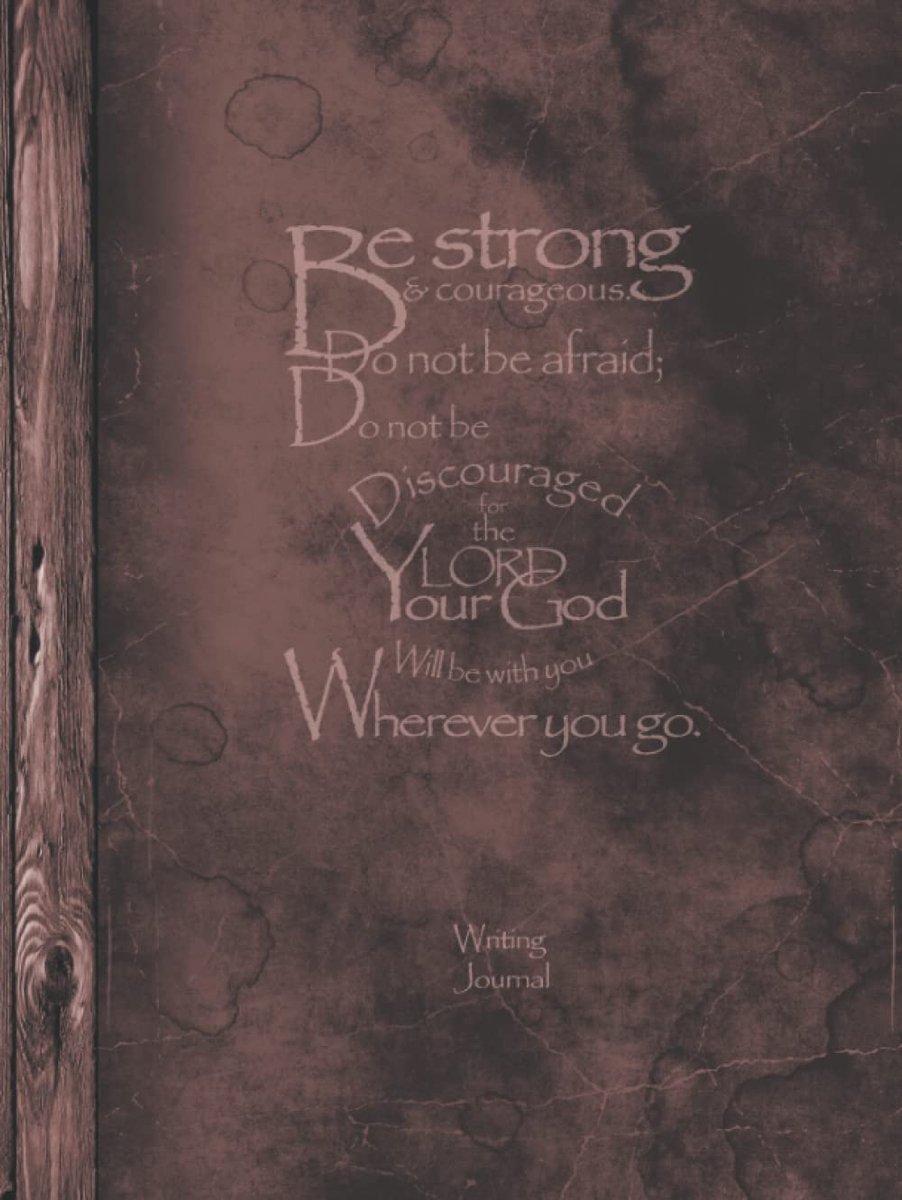 Be strong
& courageous.
Do not be afraid;
Do not be
Discouraged
for
the
LORD
Your God
Will be with you
Wherever you go.
Writing
Journal